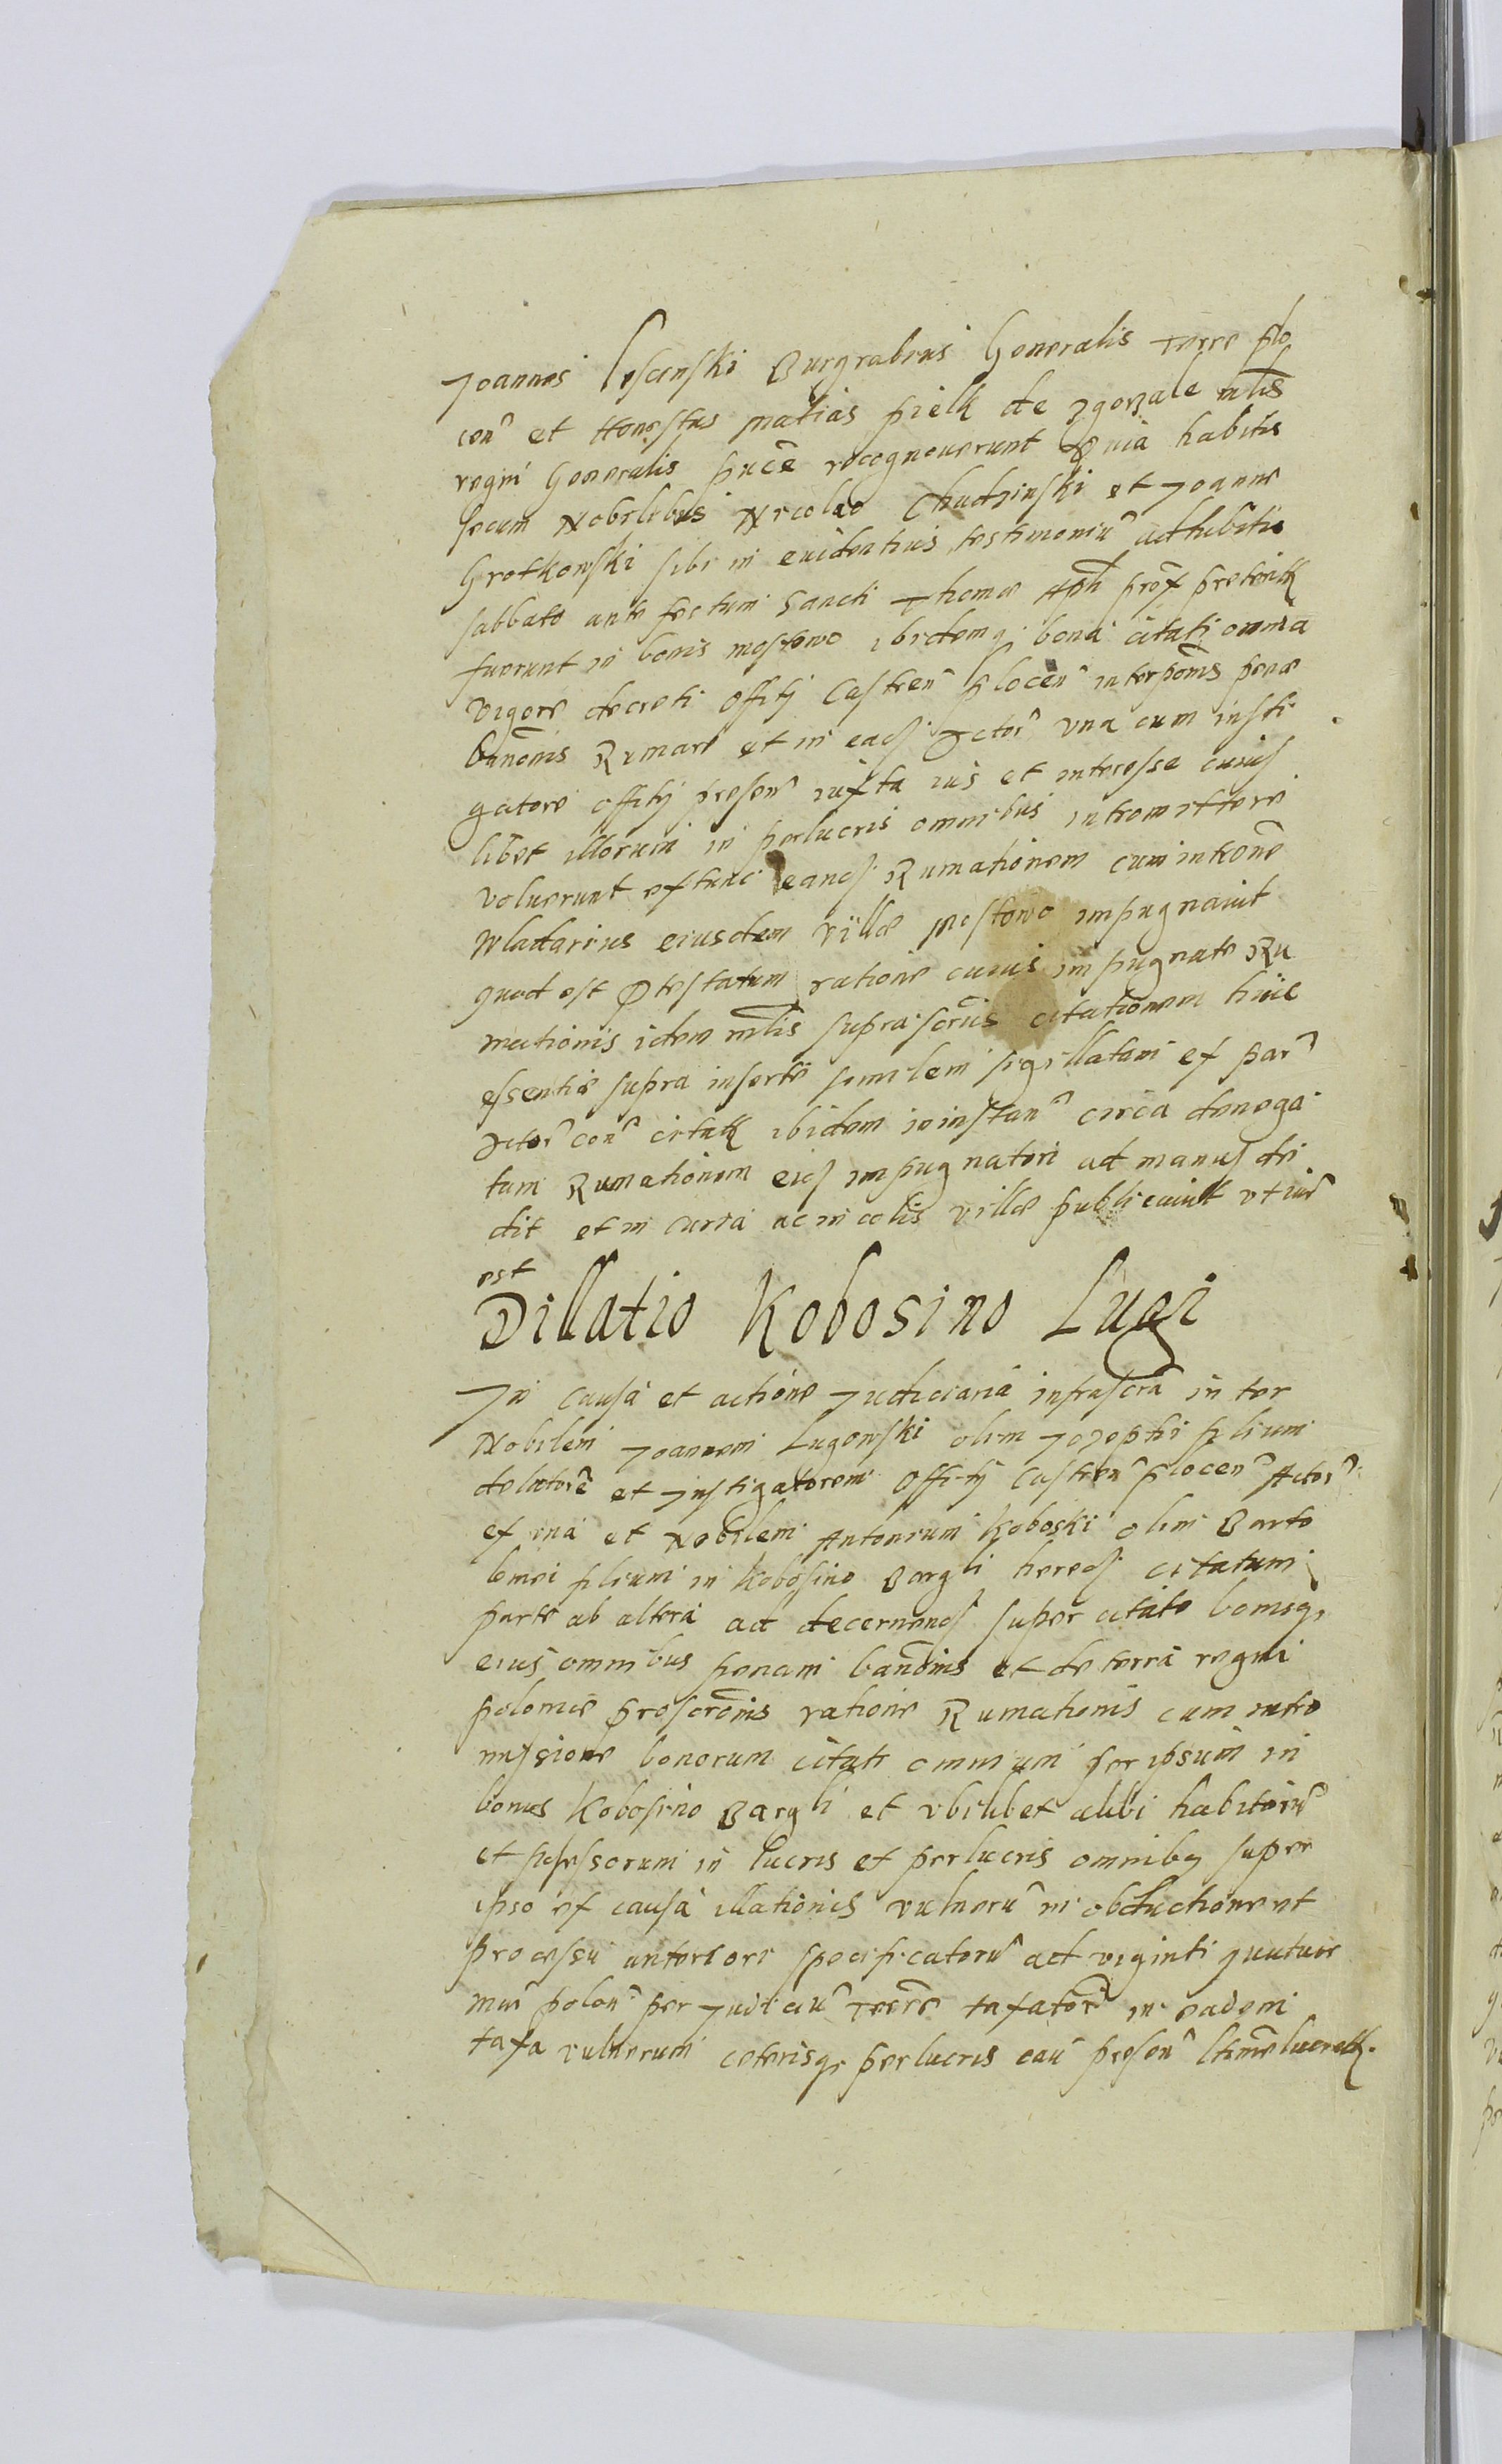 Joannes Lescinski Burgrabius Generalis terre plo
cen et Honestus Matias pielk de Zgorzale mlis
regni Generalis puce recognoverunt Quia habitis
secum Nobilibus Nicolao Chudzinski et Joanne
Grotkowski sibi in evidentius testimoniu adhibitis
sabbato ante festum Sancti Thomæ Apli prox preterit
fuerunt in bonis Mostowo ibidemq bona citati omnia
vigore decreti Offitij Castren Plocen interponis penæ
bannonis Rumare et in ead Actor una cum insti
gatore offitij presen iuxta ius et interesse cuius
libet illorum in perlucris omnibus intromittere
voluerunt extunc eand Rumationem cum introne
Wladarius eiusdem villæ Mostowo impugnavit
quod est Ptestatum ratione cuius impugnate Ru
mationis idem mlis suprascrius citationem huic
essentiæ supra inserte similem sigillatam ex par
Actor con citat ibidem in instan circa denega
tam Rumationem eid impugnatori ad manus de
dit et in curia ac incolis villæ publicavit ut iur
est
Dillatio Kobosino Lugi
In causa et actione Judiciaria infrascra inter
Nobilem Joannem Lugowski olim Jozephi filium
delatore et Instigatorem Offitij Castren Plocen Actor
ex una et Nobilem Antonium Koboski olim Barto
lomei filium in Kobosino Bargli hered citatum
parte ab altera ad decernend super citato bonisq
eius omnibus penam bannonis et de terra regni
poloniæ proscronis ratione Rumationis cum intro
missione bonorum citati omnium per ipsum in
bonis Kobosino Bargli et ubilibet alibi habitoru
et possessorum in lucris et perlucris omnibq super
ipso ex causa illationis vulneru in obductione et
processu anteriori specificatoru ad viginti quatuor
mar polon per Judiciu terre taxator in eadem
taxa vulnerum ceterisq perlucris cau presen